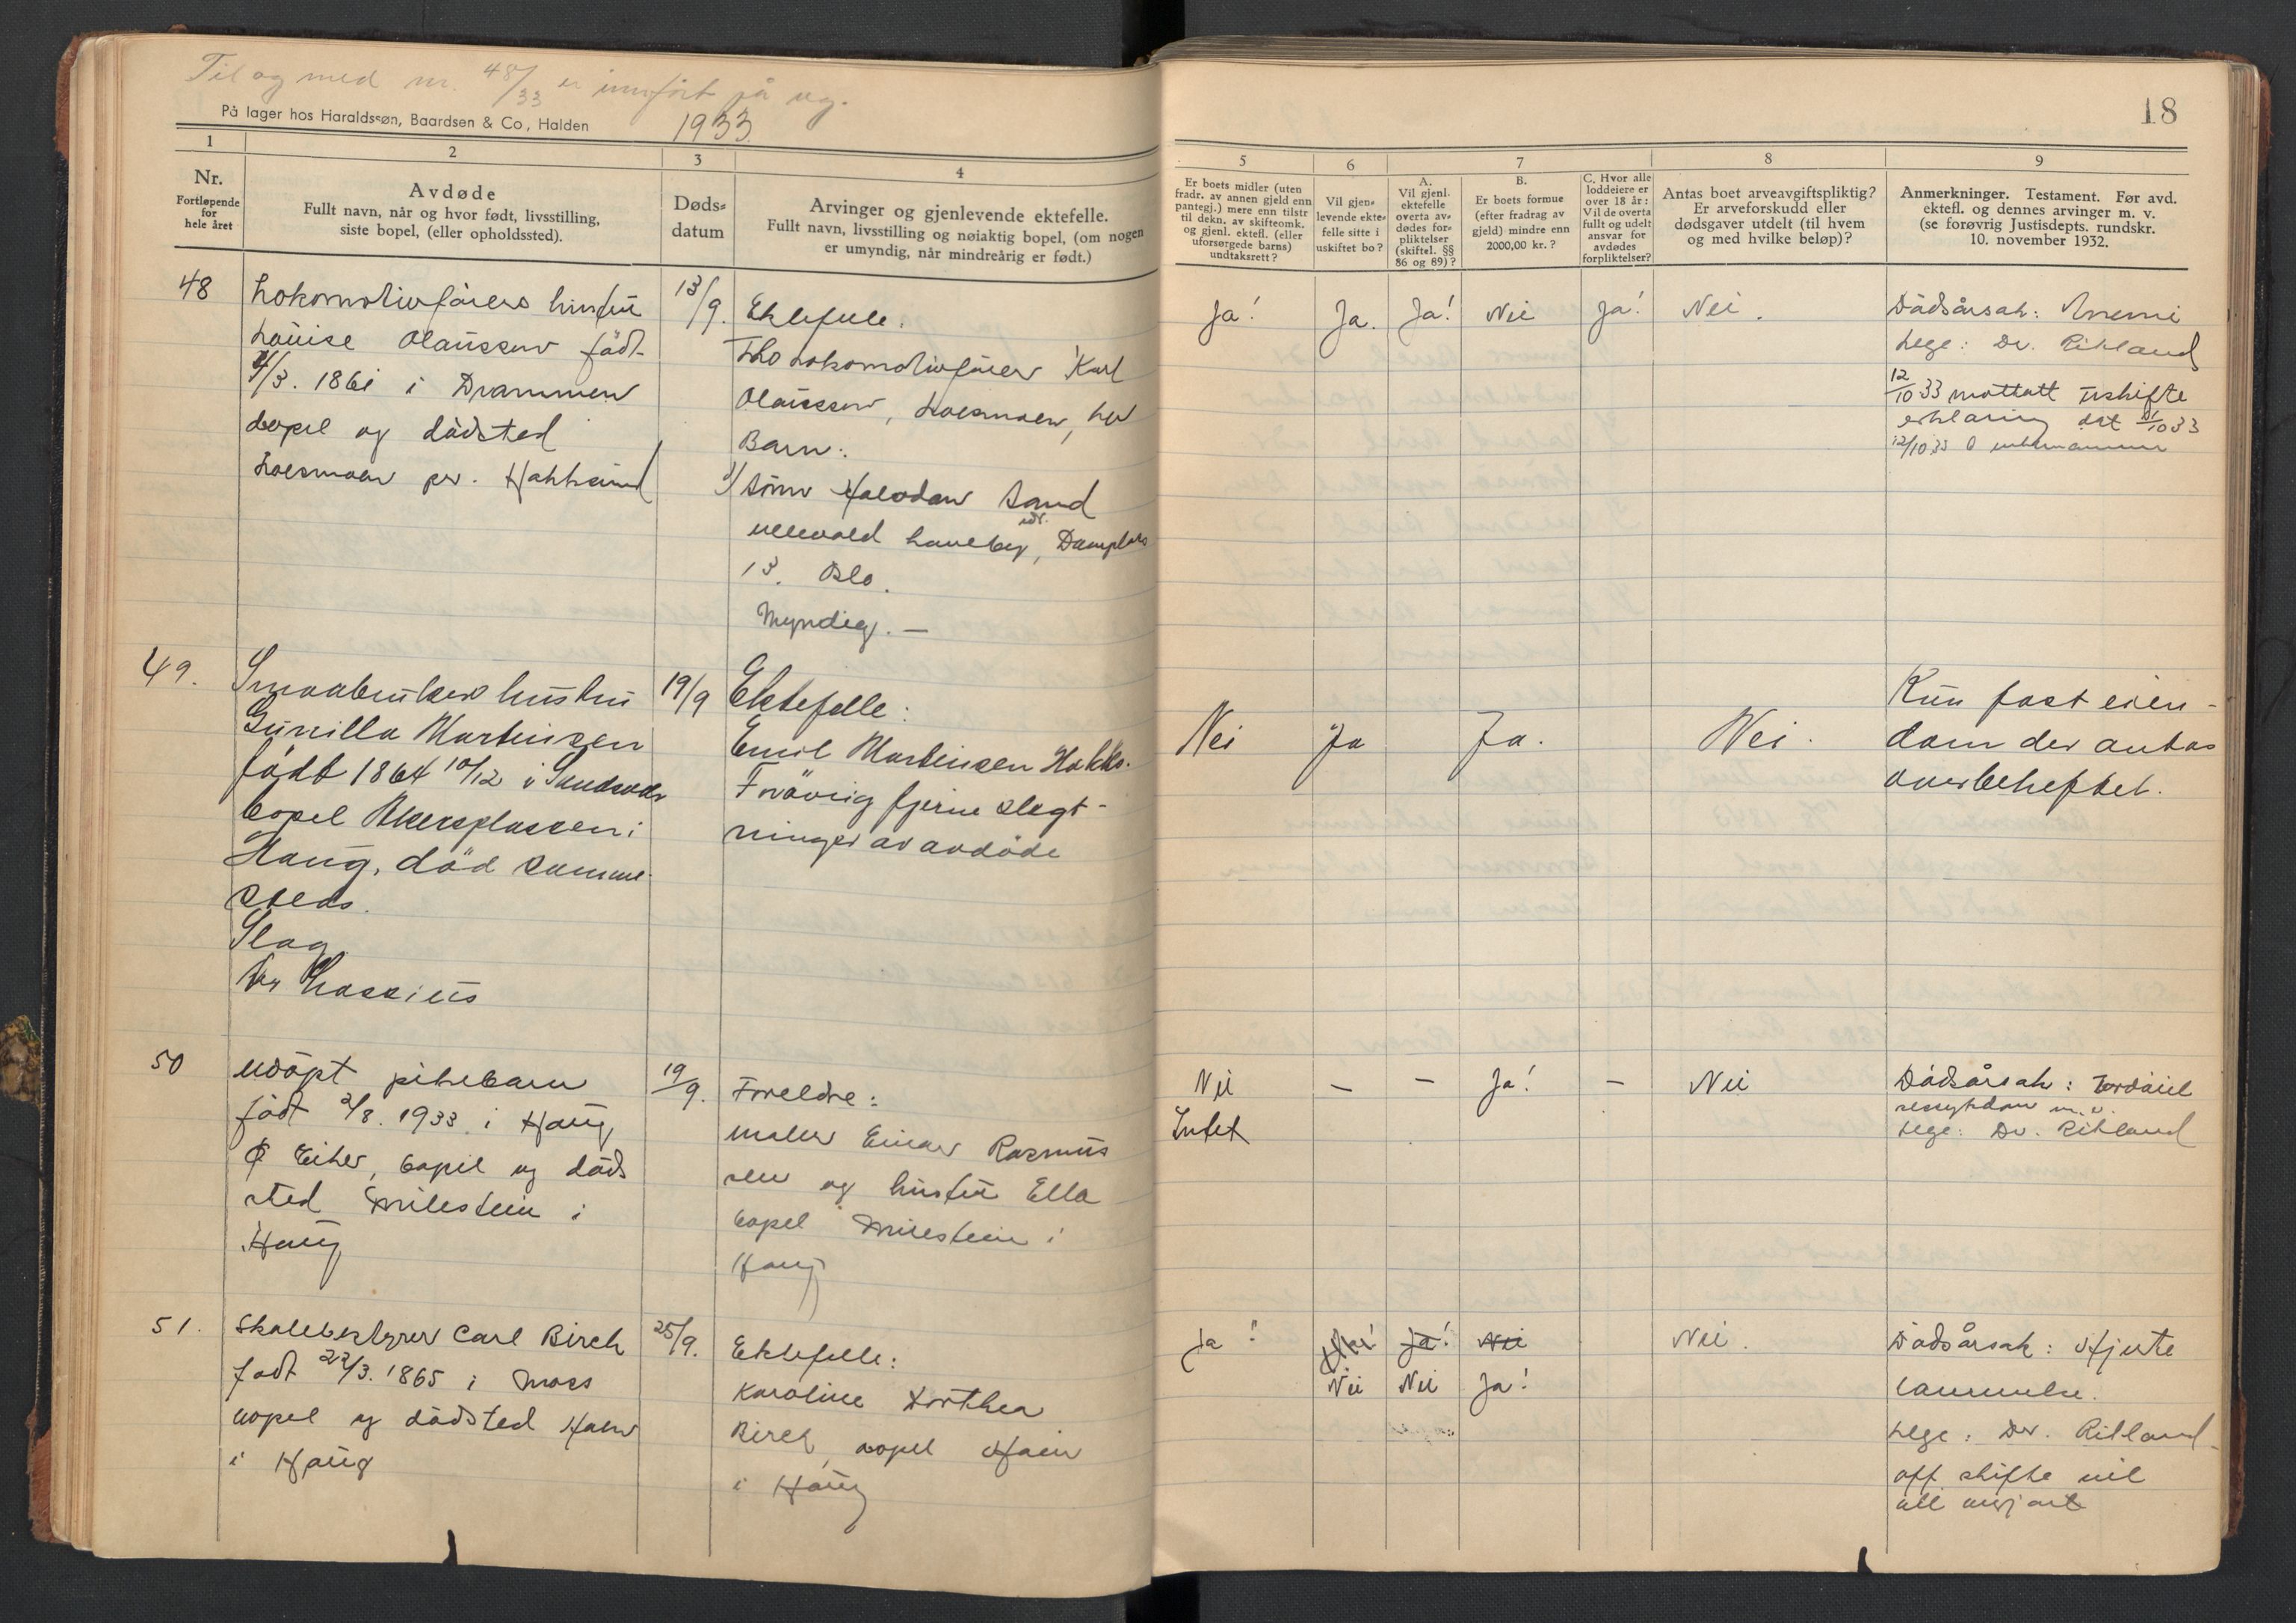 Til og med nr. 48/33 er innført på reg.
På lager hos Haraldssøn, Baardsen & Co., Halden
1933
18
1
2
3
4
5
6
7
8
9
Nr.
Fortløpende
for
hele året
Avdøde
Fullt navn, når og hvor født, livsstilling,
siste bopel, (eller opholdssted).
Døds-
datum
Arvinger og gjenlevende ektefelle.
Fullt navn, livsstilling og nøiaktig bopel, (om nogen
er umyndig, når mindreårig er født.)
Er boets midler (uten
fradr. av annen gjeld enn
pantegj.) mere enn tilstr
til dekn. av skifteomk.
og gjenl. ektefl. (eller
uforsørgede barns)
undtaksrett?
Vil gjen-
levende ekte-
felle sitte i
uskiftet bo?
A.
Vil gjenl.
ektefelle
overta av-
dødes for-
pliktelser
(skiftel. §§
86 og 89)?
B.
Er boets formue
(efter fradrag av
gjeld) mindre enn
2000,00 kr.?
C. Hvor alle
loddeiere er
over 18 år:
Vil de overta
fullt og udelt
ansvar for
avdødes
forpliktelser?
Antas boet arveavgiftspliktig?
Er arveforskudd eller
dødsgaver utdelt (til hvem
og med hvilke beløp)?
Anmerkninger. Testament. Før avd.
ektefl. og dennes arvinger m. v.
(se forøvrig Justisdepts. rundskr.
10. november 1932.
48
Lokomotivførers hustru
Louise Olaussen født
4/3. 1861 i Drammen
bopel og dødsted
Loesmoen pr. Hokksund
13/9.
Ektefelle:
Lokomotivfører Karl
Olaussen, Loesmoen, her
Barn:
1/ Sønn Halvdan Sand
Ullevold Haveby, Damplass
13. Oslo.
Myndig. —
Ja!
Ja.
Ja!
Nei
Ja!
Nei.
Dødsårsak: Anemi
Lege: Dr. Rikland
12/10 33 mottatt uskifte
erklæring dat /10 33
12/10 33
49.
Smaabrukers hustru
Gunilla Martinsen
født 1864 10/12 i
bopel Akersplassen i
Haug, død samme-
steds.
Slag
Dr Lassius
19/9
Ektefelle:
Emil Martinsen Hokks.
Forøvrig fjerne slegt-
ninger av avdøde
Nei
Ja
Ja.
Nei.
Kun fast eien-
dom der antas
overbeheftet.
50
Udøpt pikebarn
født 2/8. 1933 i Haug
Ø Eiker, bopel og døds
sted Milestein i
Haug
19/9.
Foreldre:
maler Einar Rasmus
sen og hustru Ella
bopel Milestein i
Haug
Nei
Intet
—
—
Ja!
—
Nei
Dødsårsak: Fordøiel
sessykdom m.v.
Lege: Dr. Rikland
51.
Skolebestyrer Carl Birch
født 22/3. 1865 i Moss
bopel og dødsted Hoen
i Haug
25/9.
Ektefelle:
Karoline Dorthea
Birch, bopel Hoen
i Haug
Ja!
Ja!
Nei
Nei.
Nei
Nei
Ja!
Dødsårsak: Hjerte
lammelse.
Lege: Dr. Rikland.
off skifte vil